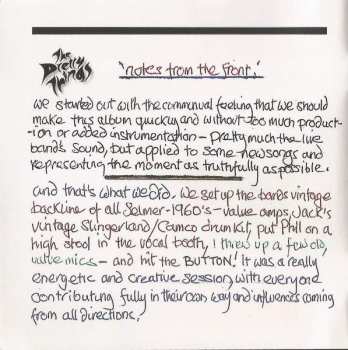 The
Pretty
Things
'notes from the front.'
we started out with the communal feeling that we should
make this album quickly and without too much product-
-ion or added instrumentation - pretty much the live
band's sound, but applied to some new songs and
representing the moment as truthfully as possible.
and that's what we did. we set up the bands vintage
backline of all Selmer-1960's-valve amps, Jack's
vintage Slingerland/Camco drum kit, put Phil on a
high stool in the vocal booth, I threw up a few old,
valve mics - and hit the BUTTON! It was a really
energetic and creative session, with everyone
contributing fully in their own way and influences coming
from all directions.